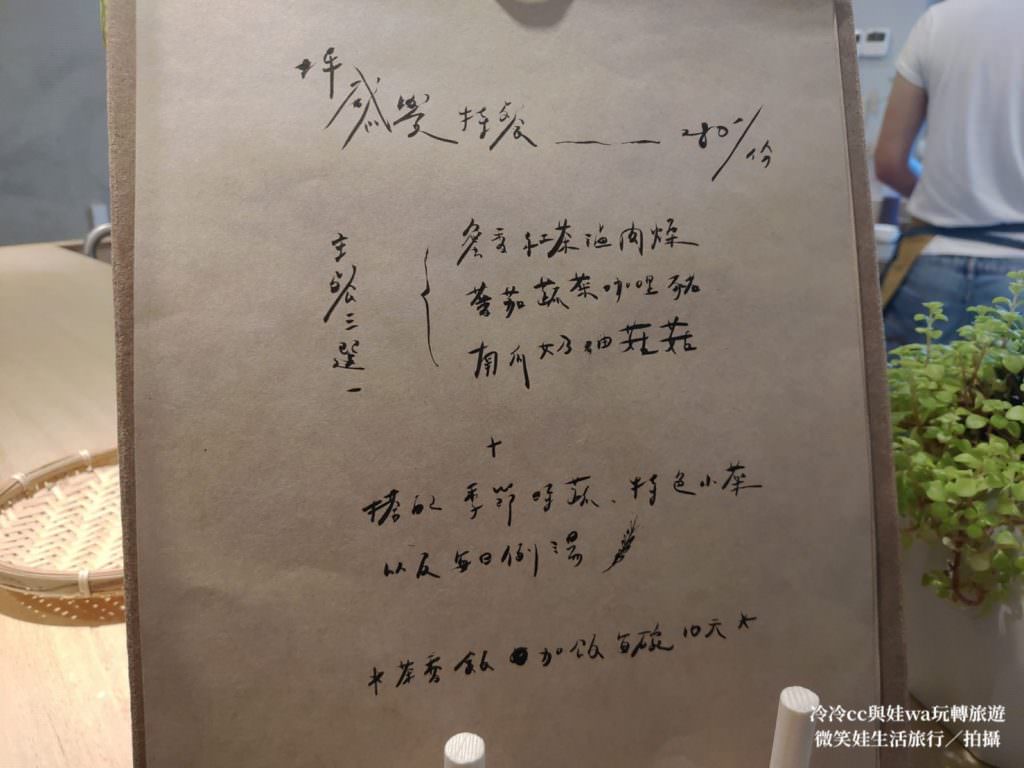 坪感覺特餐 —— 280/份
主餐三選一
蜜香紅茶滷肉燥
蕃茄蔬菜咖哩豬
南瓜奶油菇菇
+
搭配季節時蔬、特色小菜
以及每日例湯
*茶香飯 加飯每碗10元*
冷冷cc與娃wa玩轉旅遊
微笑娃生活旅行／拍攝